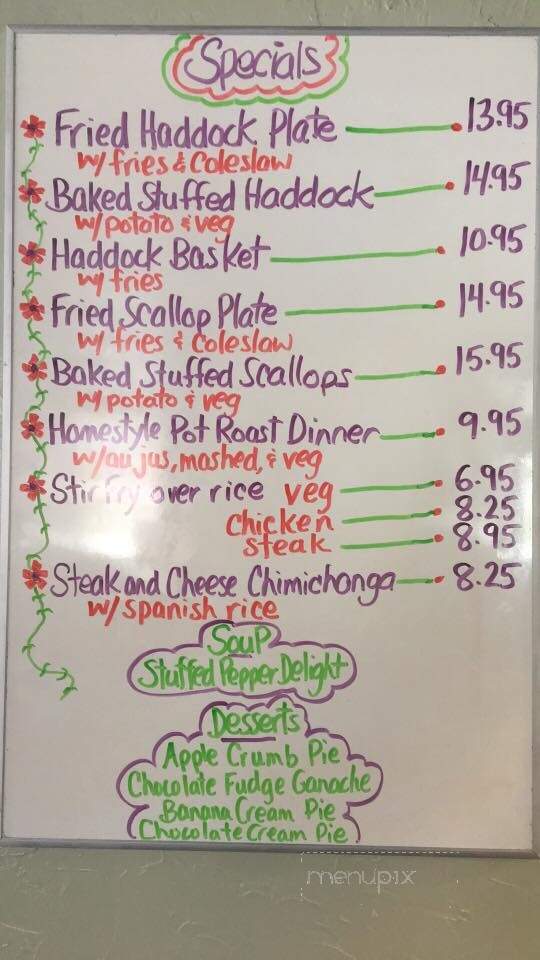 Specials
Fried Haddock Plate 13.95
w/ fries & Coleslaw
Baked Stuffed Haddock 14.95
w/ potato & veg
Haddock Basket 10.95
w/ fries
Fried Scallop Plate 14.95
w/ fries & Coleslaw
Baked Stuffed Scallops 15.95
w/ potato & veg
Homestyle Pot Roast Dinner 9.95
w/ au jus, mashed, & veg
Stir fry over rice veg 6.95
Chicken 8.25
steak 8.95
Steak and Cheese Chimichonga 8.25
w/ spanish rice
Soup
Stuffed Pepper Delight
Desserts
Apple Crumb Pie
Chocolate Fudge Ganache
Banana Cream Pie
Chocolate Cream Pie
menupix